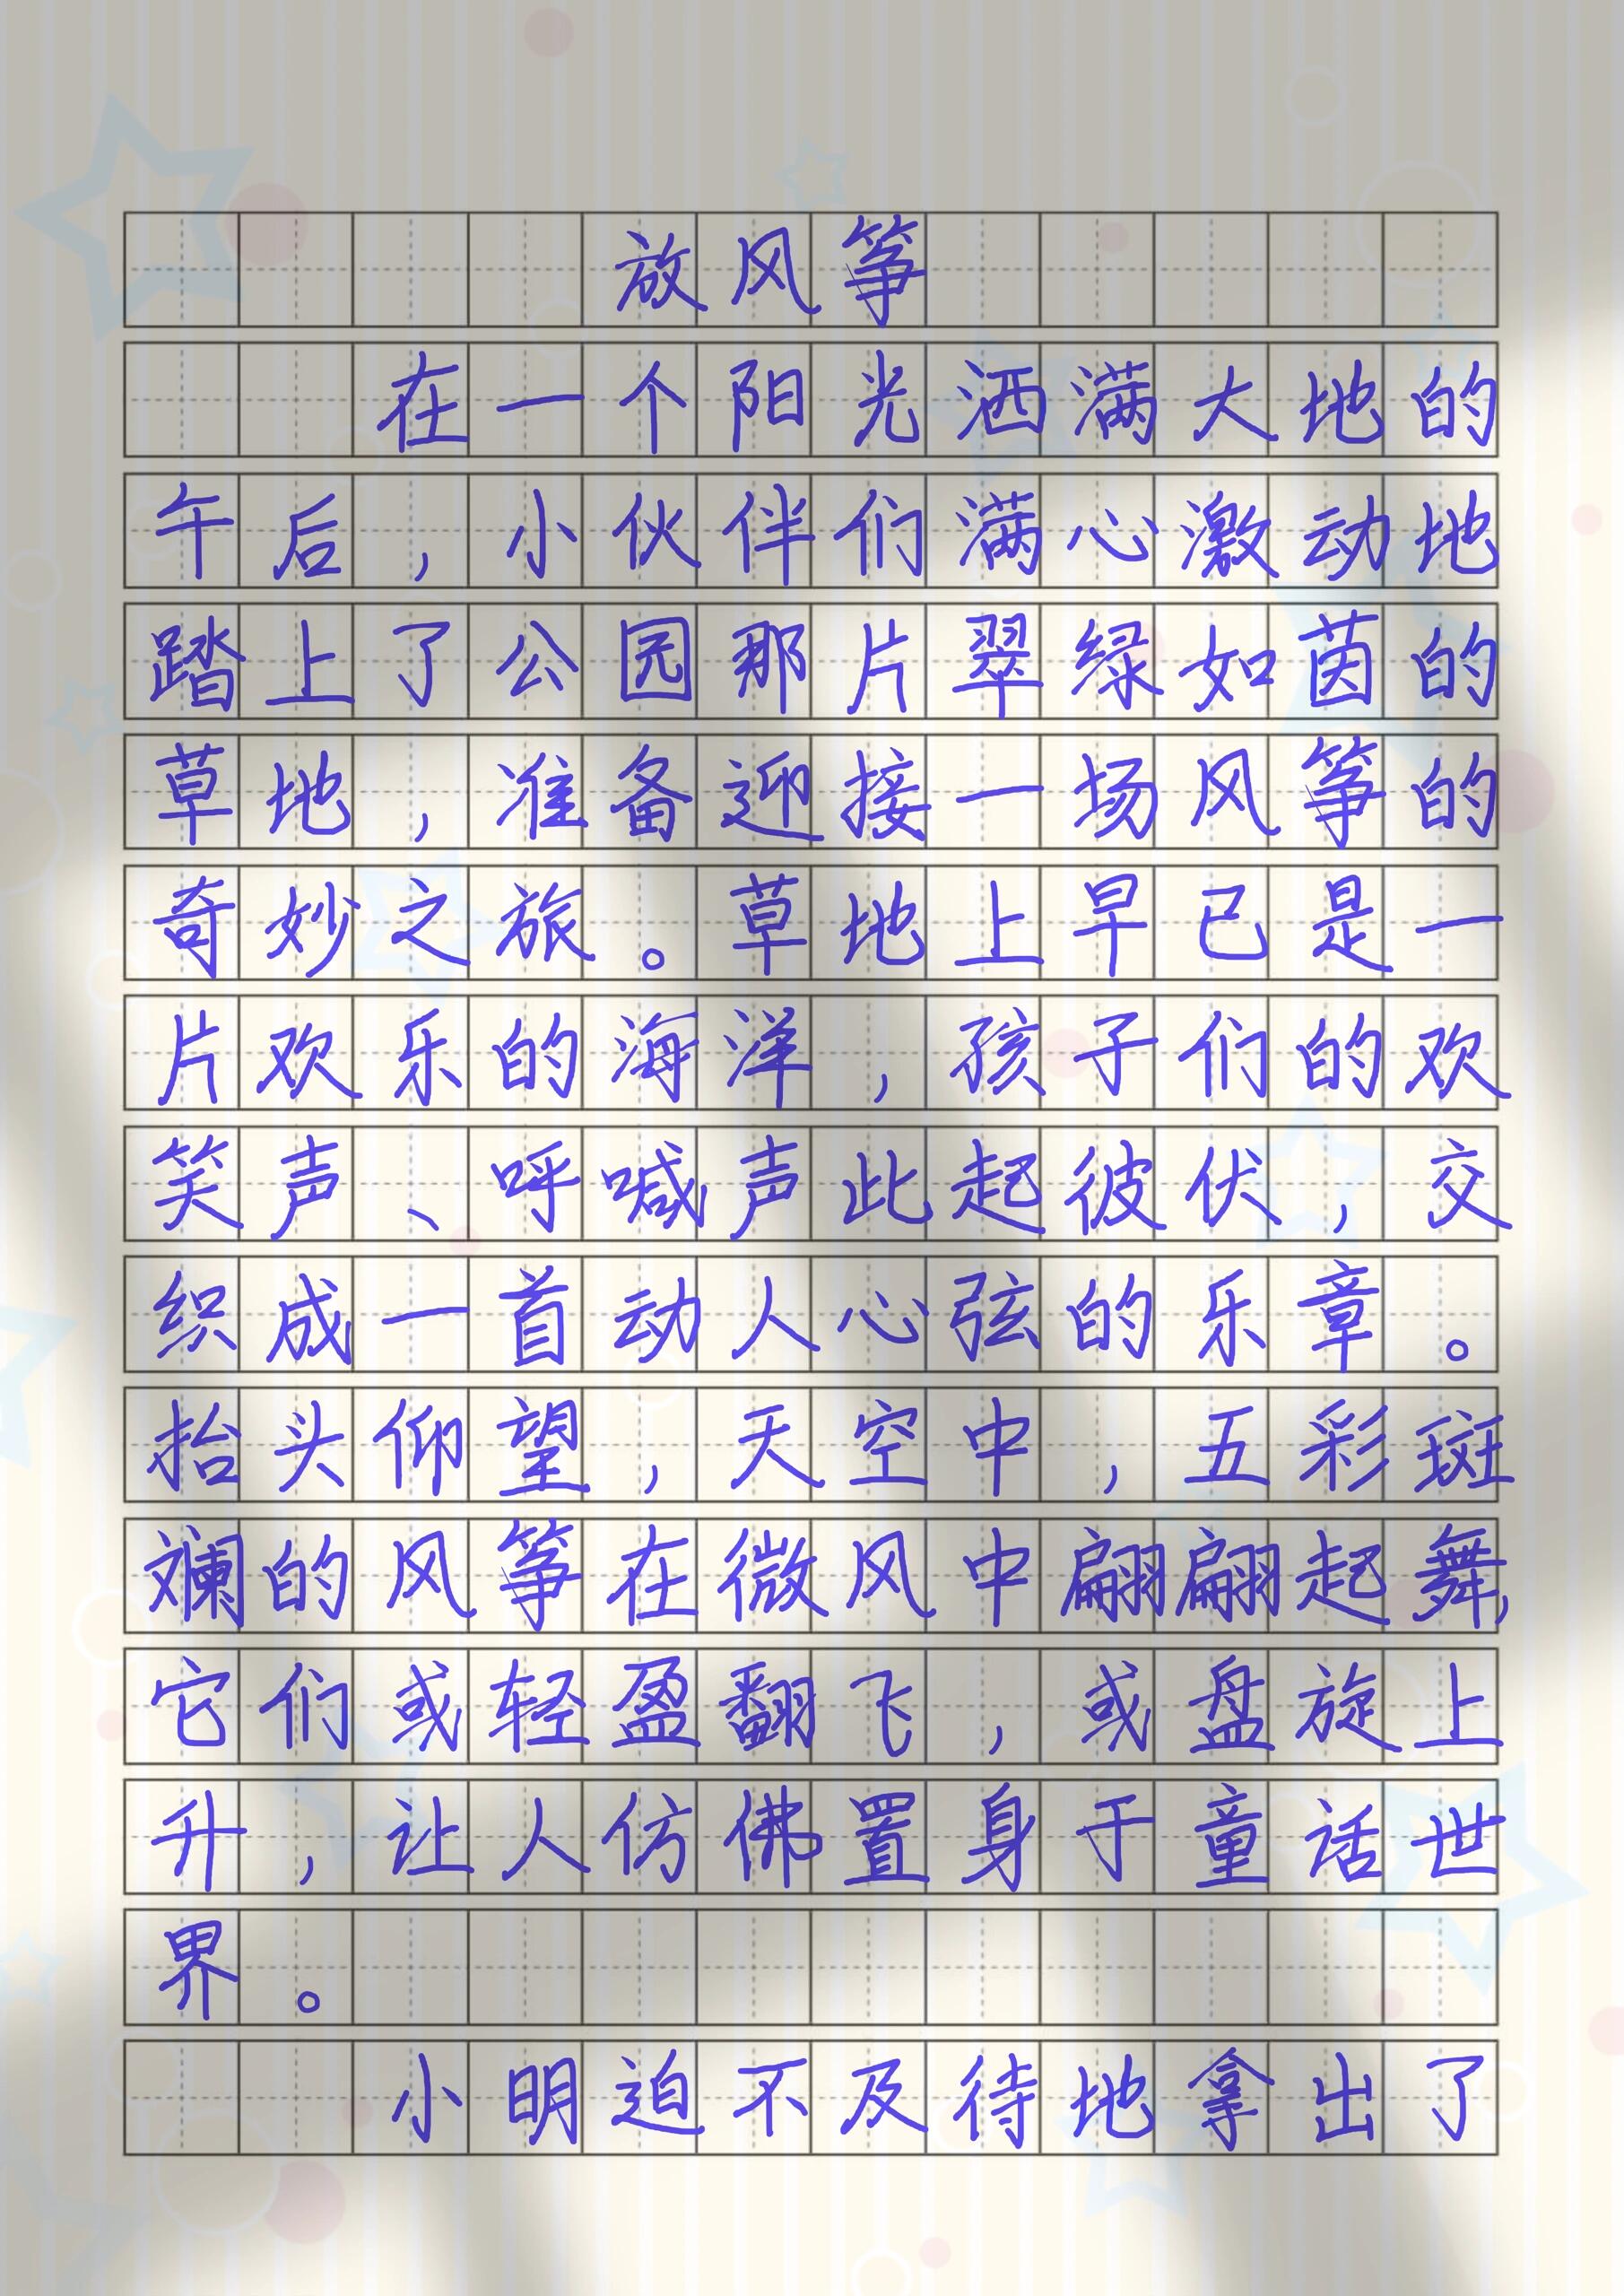 放风筝
在一个阳光洒满大地的
午后，小伙伴们满心激动地
踏上了公园那片翠绿如茵的
草地，准备迎接一场风筝的
奇妙之旅。草地上早已是一
片欢乐的海洋，孩子们的欢
笑声、呼喊声此起彼伏，交
织成一首动人心弦的乐章。
抬头仰望，天空中，五彩斑
斓的风筝在微风中翩翩起舞，
它们或轻盈翻飞，或盘旋上
升，让人仿佛置身于童话世
界。
小明迫不及待地拿出了